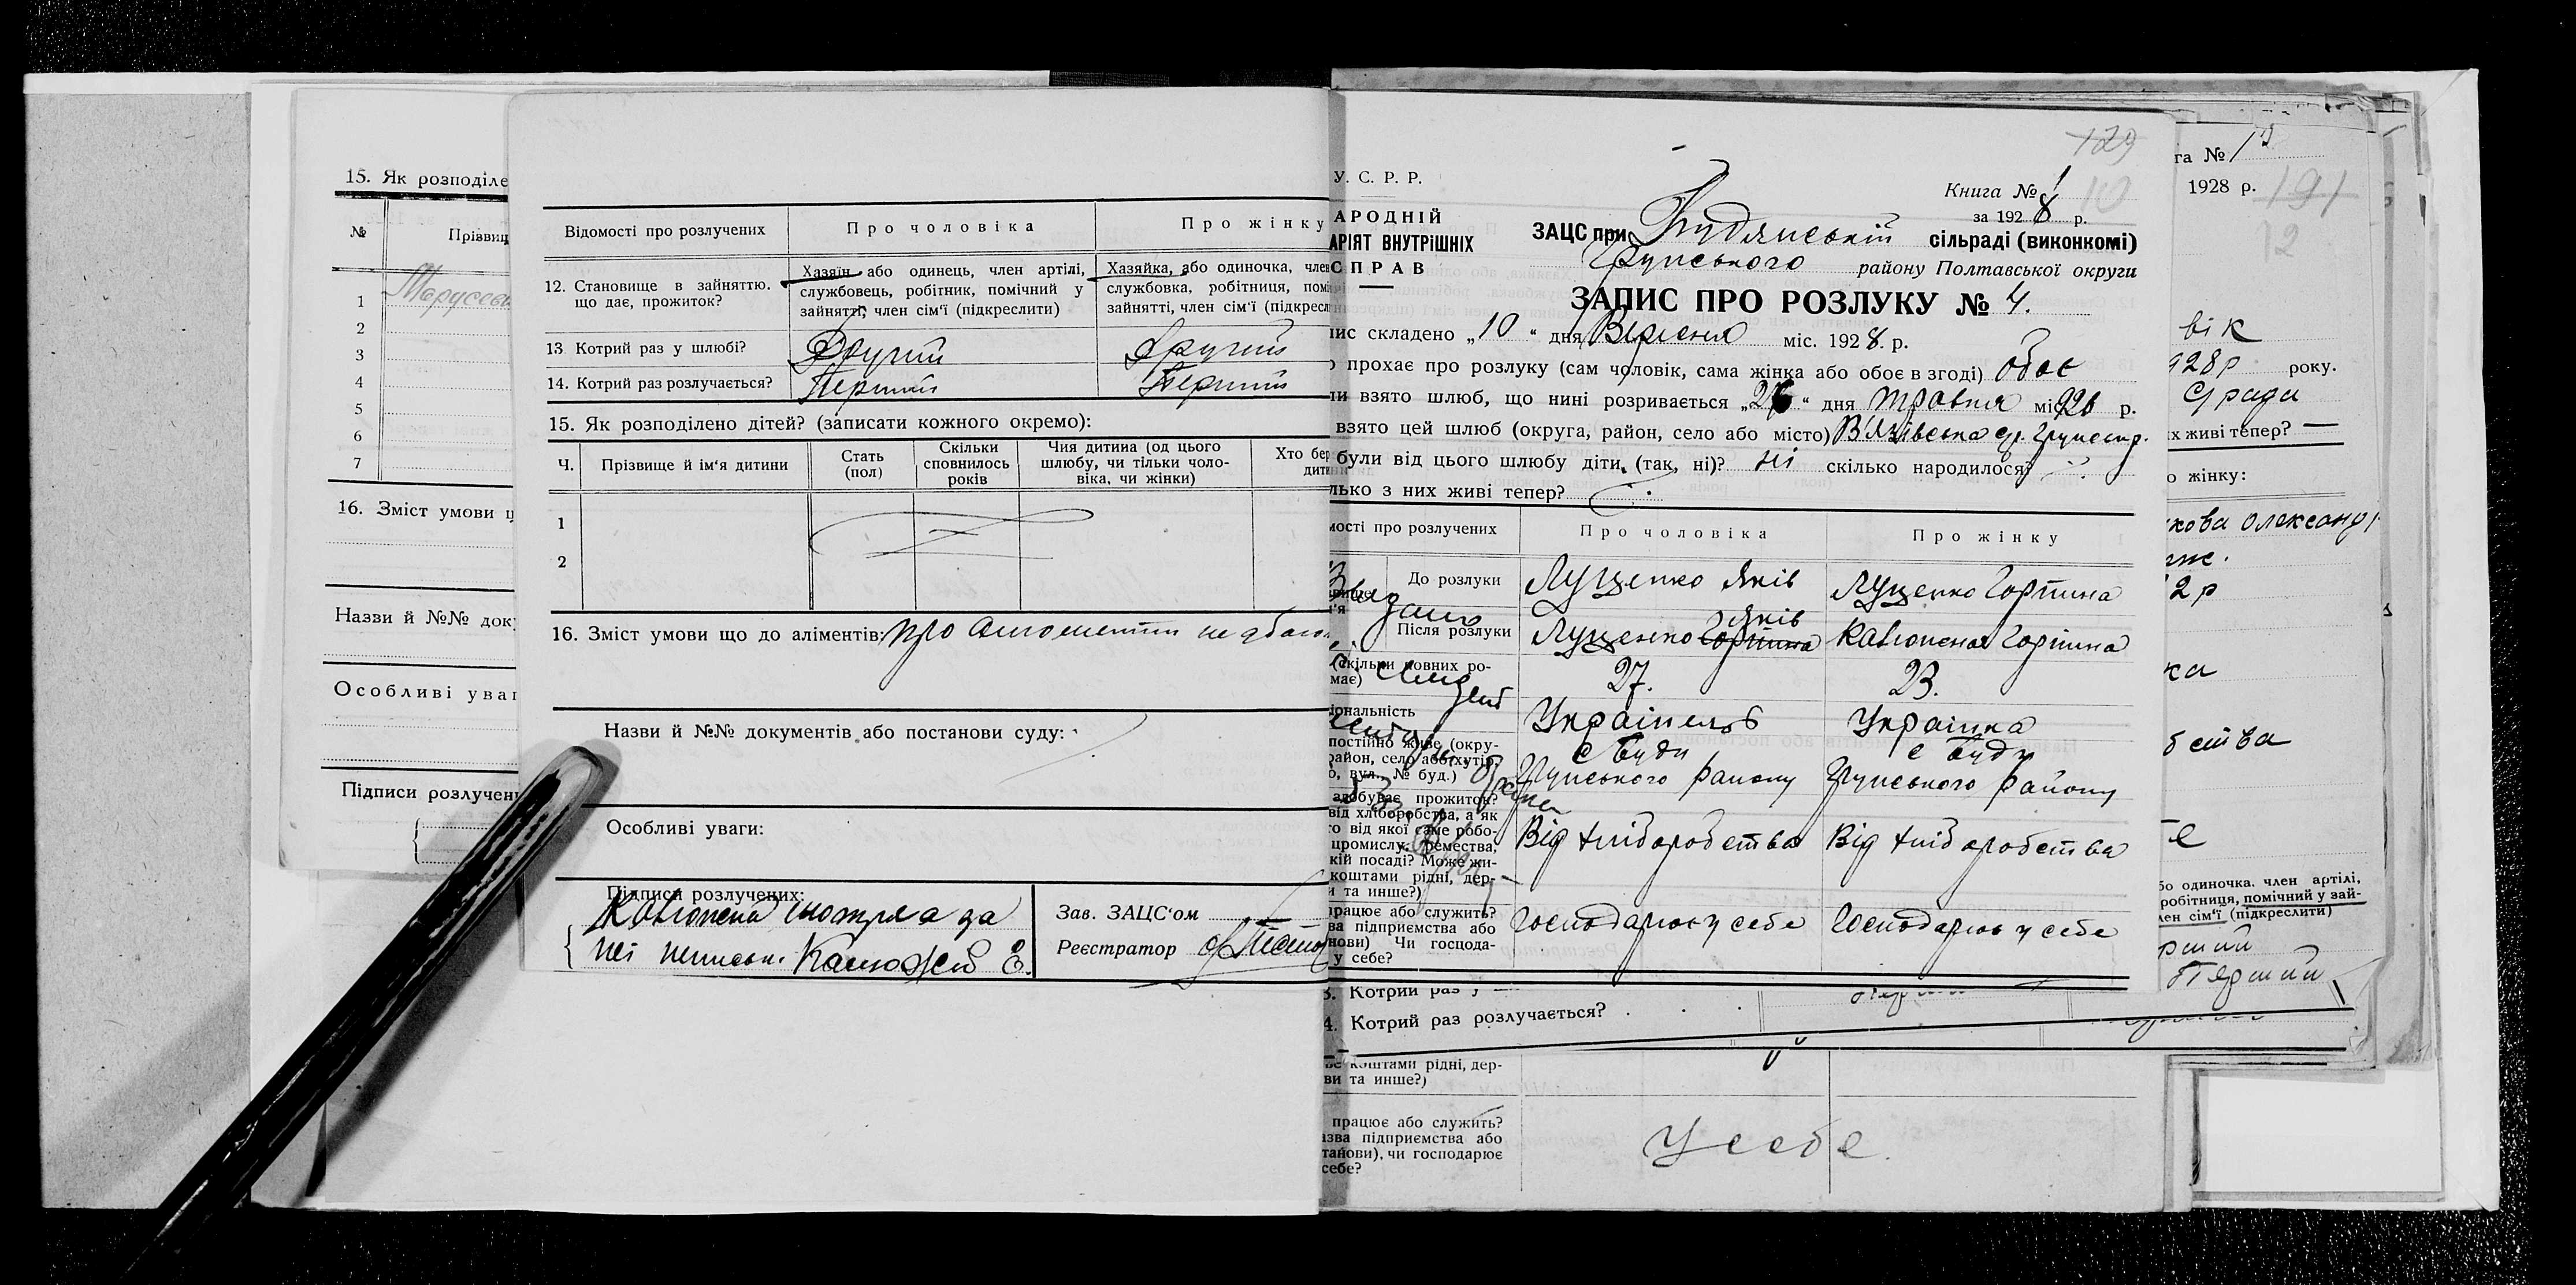 15. Як розподіле
№
Прізвищ
1
2
3
4
5
6
7
16. Зміст умови щ
Назви й №№ док
Особливі уваг
Підписи розлучен
Відомості про розлучених
Про чоловіка
Про жінку
12. Становище в зайняттю.
що дає, прожиток?
Хазяїн або одинець, член артілі,
службовець, робітник, помічний у
зайнятті, член сім'ї (підкреслити)
Хазяйка, або одиночка, член
службовка, робітниця, помі
зайнятті, член сім'ї (підкресл
13 Котрий раз у шлюбі?
Другий
Другий
14. Котрий раз розлучається?
Перший
Перший
15. Як розподілено дітей? (записати кожного окремо):
Ч.
Прізвище й ім'я дитини
Стать
(пол)
Скільки
сповнилось
років
Чия дитина (од цього
шлюбу, чи тільки чоло-
віка, чи жінки)
Хто бер
дити
1
2
16. Зміст умови що до аліментів: про
Назви й №№ документів або постанови суду:
Особливі уваги:
Підписи розлучених:
за
неї
Зав. ЗАЦС'ом
Реєстратор
129
У. С. Р. Р.
Книга № 1
10
за 1928 р.
АРОДНІЙ
АРІЯТ ВНУТРІШНІХ
СПРАВ
ЗАЦС при Будянській сільраді (виконкомі)
Грунського району Полтавської округи
ЗАПИС ПРО РОЗЛУКУ № 4.
ис складено „10" дня Вересня міс. 1928. р.
о прохає про розлуку (сам чоловік, сама жінка або обоє в згоді) обоє
ли взято шлюб, що нині розривається „26" дня травня міс 1926 р.
взято цей шлюб (округа, район, село або місто)
були від цього шлюбу діти, (так, ні)? ні скілько народилося?
лько з них живі тепер?
мості про розлучених
Про чоловіка
Про жінку
До розлуки
Луценко Яків
Луценко Горпина
Після розлуки
Яків
Луценко Горпина
Горпина
(скільки повних ро-
має)
27.
23.
іональність
Українець
Українка
постійно живе (окру-
район, село або хутір,
о, вул., № буд.)
с Буди
Грунського району
с Буди
Грунського району
здобуває прожиток?
від хліборобства, а як
го від якої саме робо-
промислу, ремества,
кій посаді? Може жи-
коштами рідні, дер-
и та инше?)
Від хліборобства
Від хліборобства
працює або служить?
ва підприємства або
нови) Чи господа-
у себе?
Господарює у себе
Господарює у себе
3. Котрий раз у
4. Котрий раз розлучається?
коштами рідні, дер-
ви та инше?)
працює або служить?
азва підприємства або
танови), чи господарює
себе?
У себе.
га №
1928 р.
191
12
вік
928 р року.
их живі тепер? —
о жінку:
кова Олександр
2 р
ка
бства
бо одиночка. член артілі,
робітниця, помічний у зай-
лен сім'ї (підкреслити)
рший
Перший